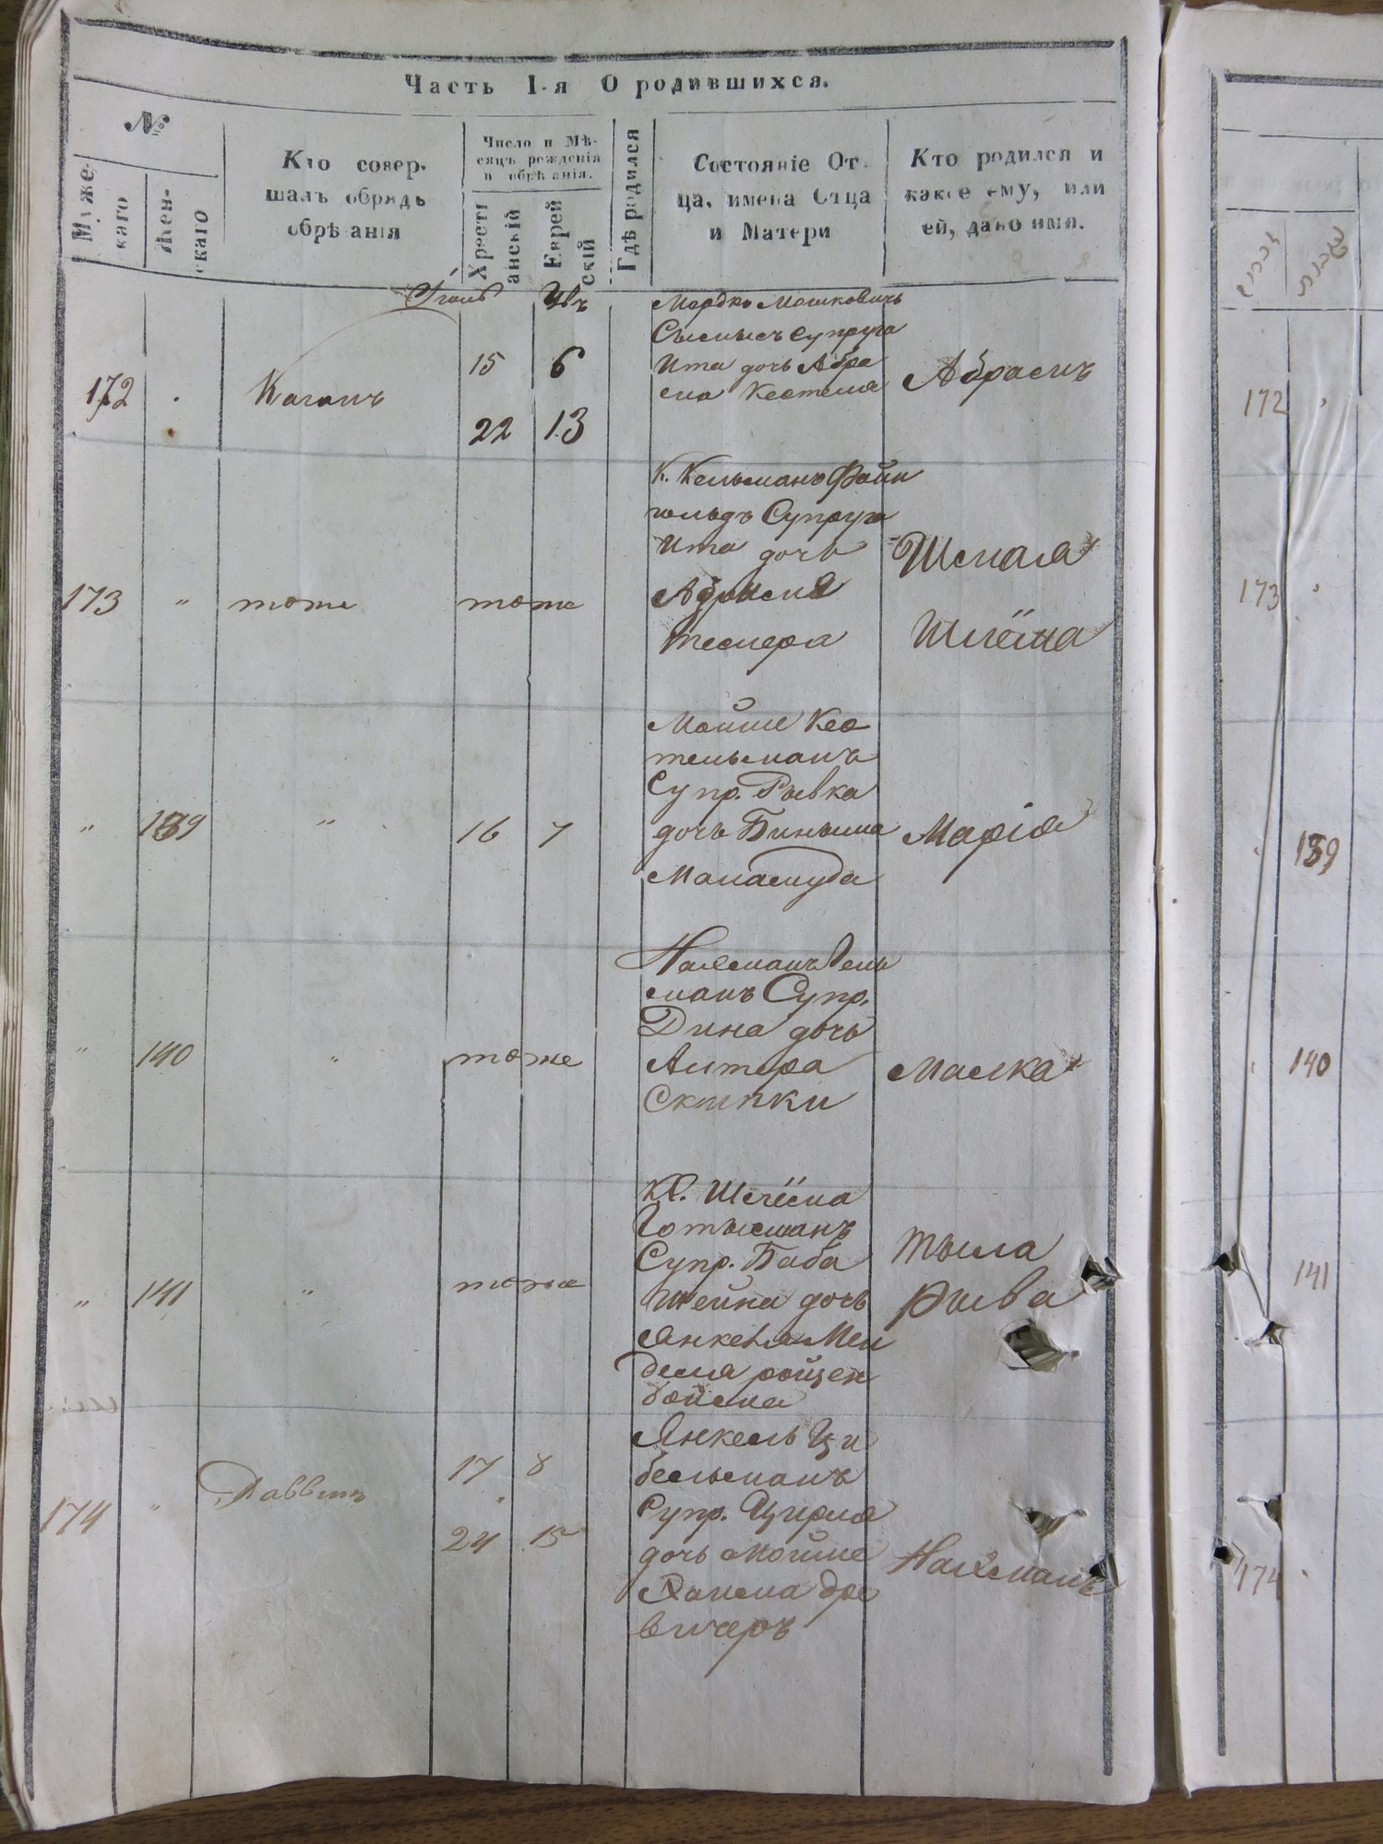 Часть I-я О родившихся.
№
Мужескаго
Женскаго
Кто совер-
шалъ обрядъ
обрѣзанія
Число и Мѣ-
сяцъ рожденія
и обрѣзанія.
Христі
анскій
Еврей
скій
Гдѣ родился
Состояніе От-
ца, имена Отца
и Матери
Кто родился и
какое ему, или
ей, дано имя.
172
Каганъ
15 6
22 13
Мордко Мошковичъ
Супруга
Ита дочь Абра
Абрамъ
173 "
тоже
тоже
К. Кельманъ Файн
гольдъ Супруга
Ита дочь
Абрама
Шмая
Шлёма
" 139
"
16 7
Мойше Ко
тельманъ
Супр. Рывка
дочь Биньима
Марія
" 140
"
тоже
Нахманъ Гель
манъ Супр.
Дина дочь
Алтера
Скипки
Малка
" 141
"
тоже
Шлёма
Супр. Баба
Шейна дочь
Янкеля Мен
деля ройзен
бойма
Тыла
Рыва
174 "
17 8
24 15
Янкель Ци
бельманъ
Супр. Цирля
дочь Мойше
Хаима дре
вичеръ
Нахманъ
172
173
139
140
141
174